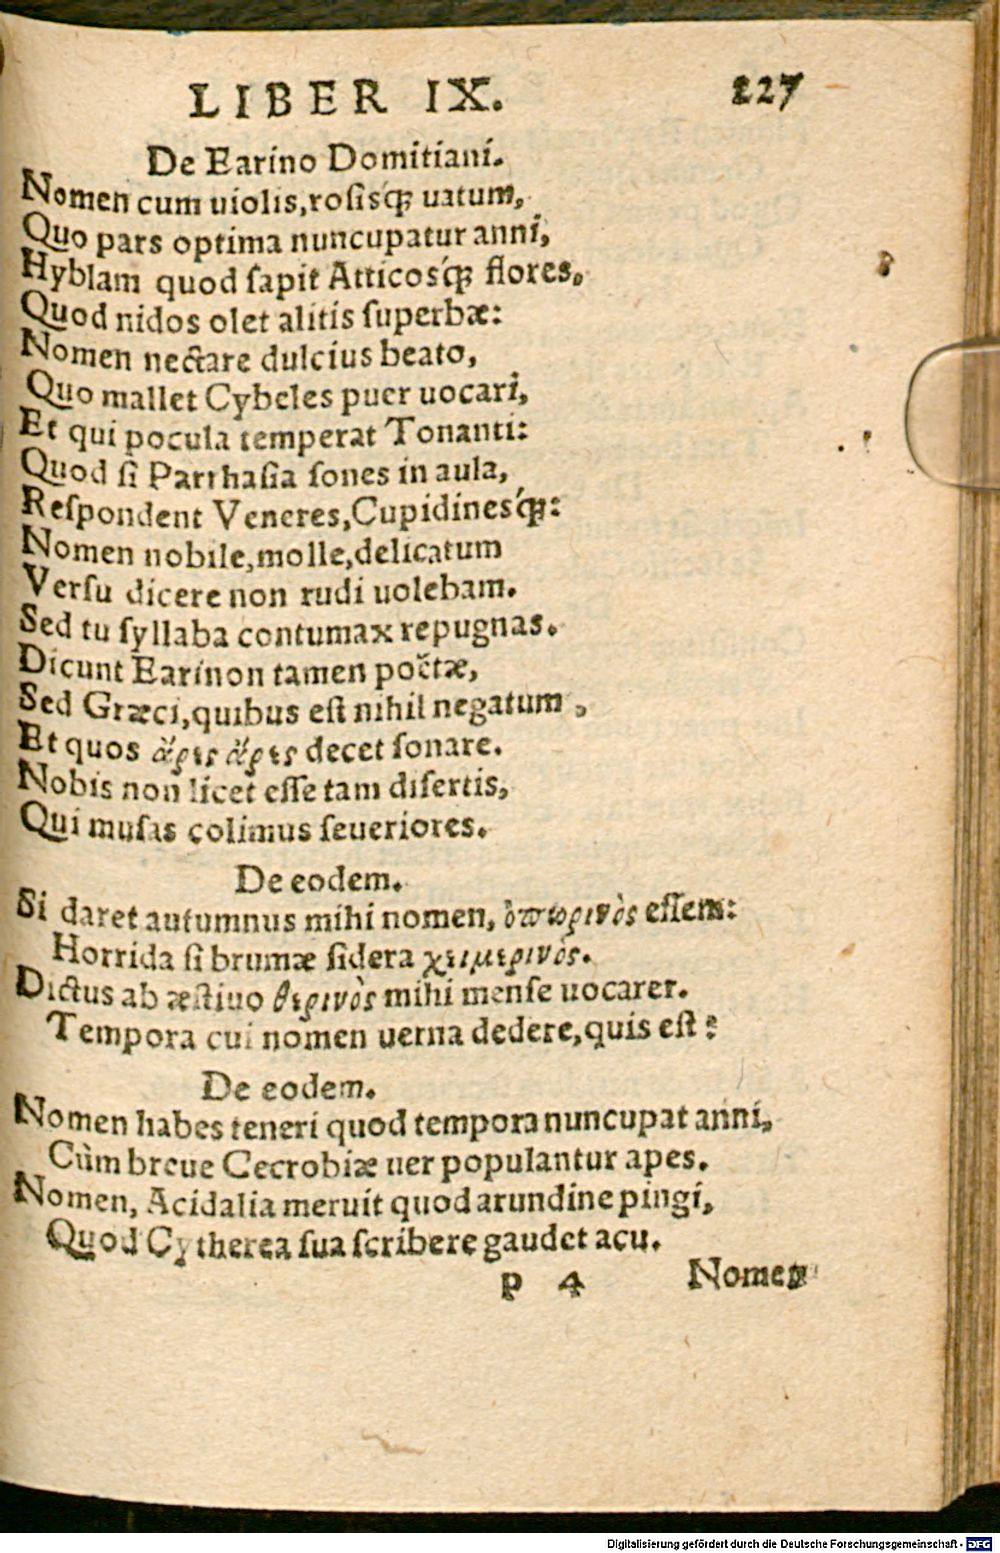 LIBER IX. 227
De Earino Domitiani.
Nomen cum uiolis, rosisq́ꝫ uatum,
Quo pars optima nuncupatur anni,
Hyblam quod sapit Atticosq́ꝫ flores,
Quod nidos olet alitis superbæ:
Nomen nectare dulcius beato,
Quo mallet Cybeles puer uocari,
Et qui pocula temperat Tonanti:
Quod si Parrhasia sones in aula,
Respondent Veneres, Cupidinesq́ꝫ:
Nomen nobile, molle, delicatum
Versu dicere non rudi uolebam.
Sed tu syllaba contumax repugnas.
Dicunt Earinon tamen poëtæ,
Sed Græci, quibus est nihil negatum,
Et quos ἄρες ἄρες decet sonare.
Nobis non licet esse tam disertis,
Qui musas colimus seueriores.
De eodem.
Si daret autumnus mihi nomen, ὀπωρινὸς essem:
Horrida si brumæ sidera χειμερινὸς.
Dictus ab æstiuo θερινὸς mihi mense uocarer.
Tempora cui nomen uerna dedere, quis est?
De eodem.
Nomen habes teneri quod tempora nuncupat anni,
Cùm breue Cecrobiæ uer populantur apes.
Nomen, Acidalia meruit quod arundine pingi,
Quod Cytherea sua scribere gaudet acu.
p 4 Nomen
Digitalisierung gefördert durch die Deutsche Forschungsgemeinschaft - DFG